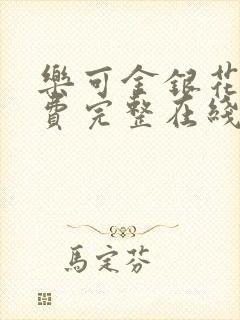 樂可金銀花
費完整在綫
馬定芬